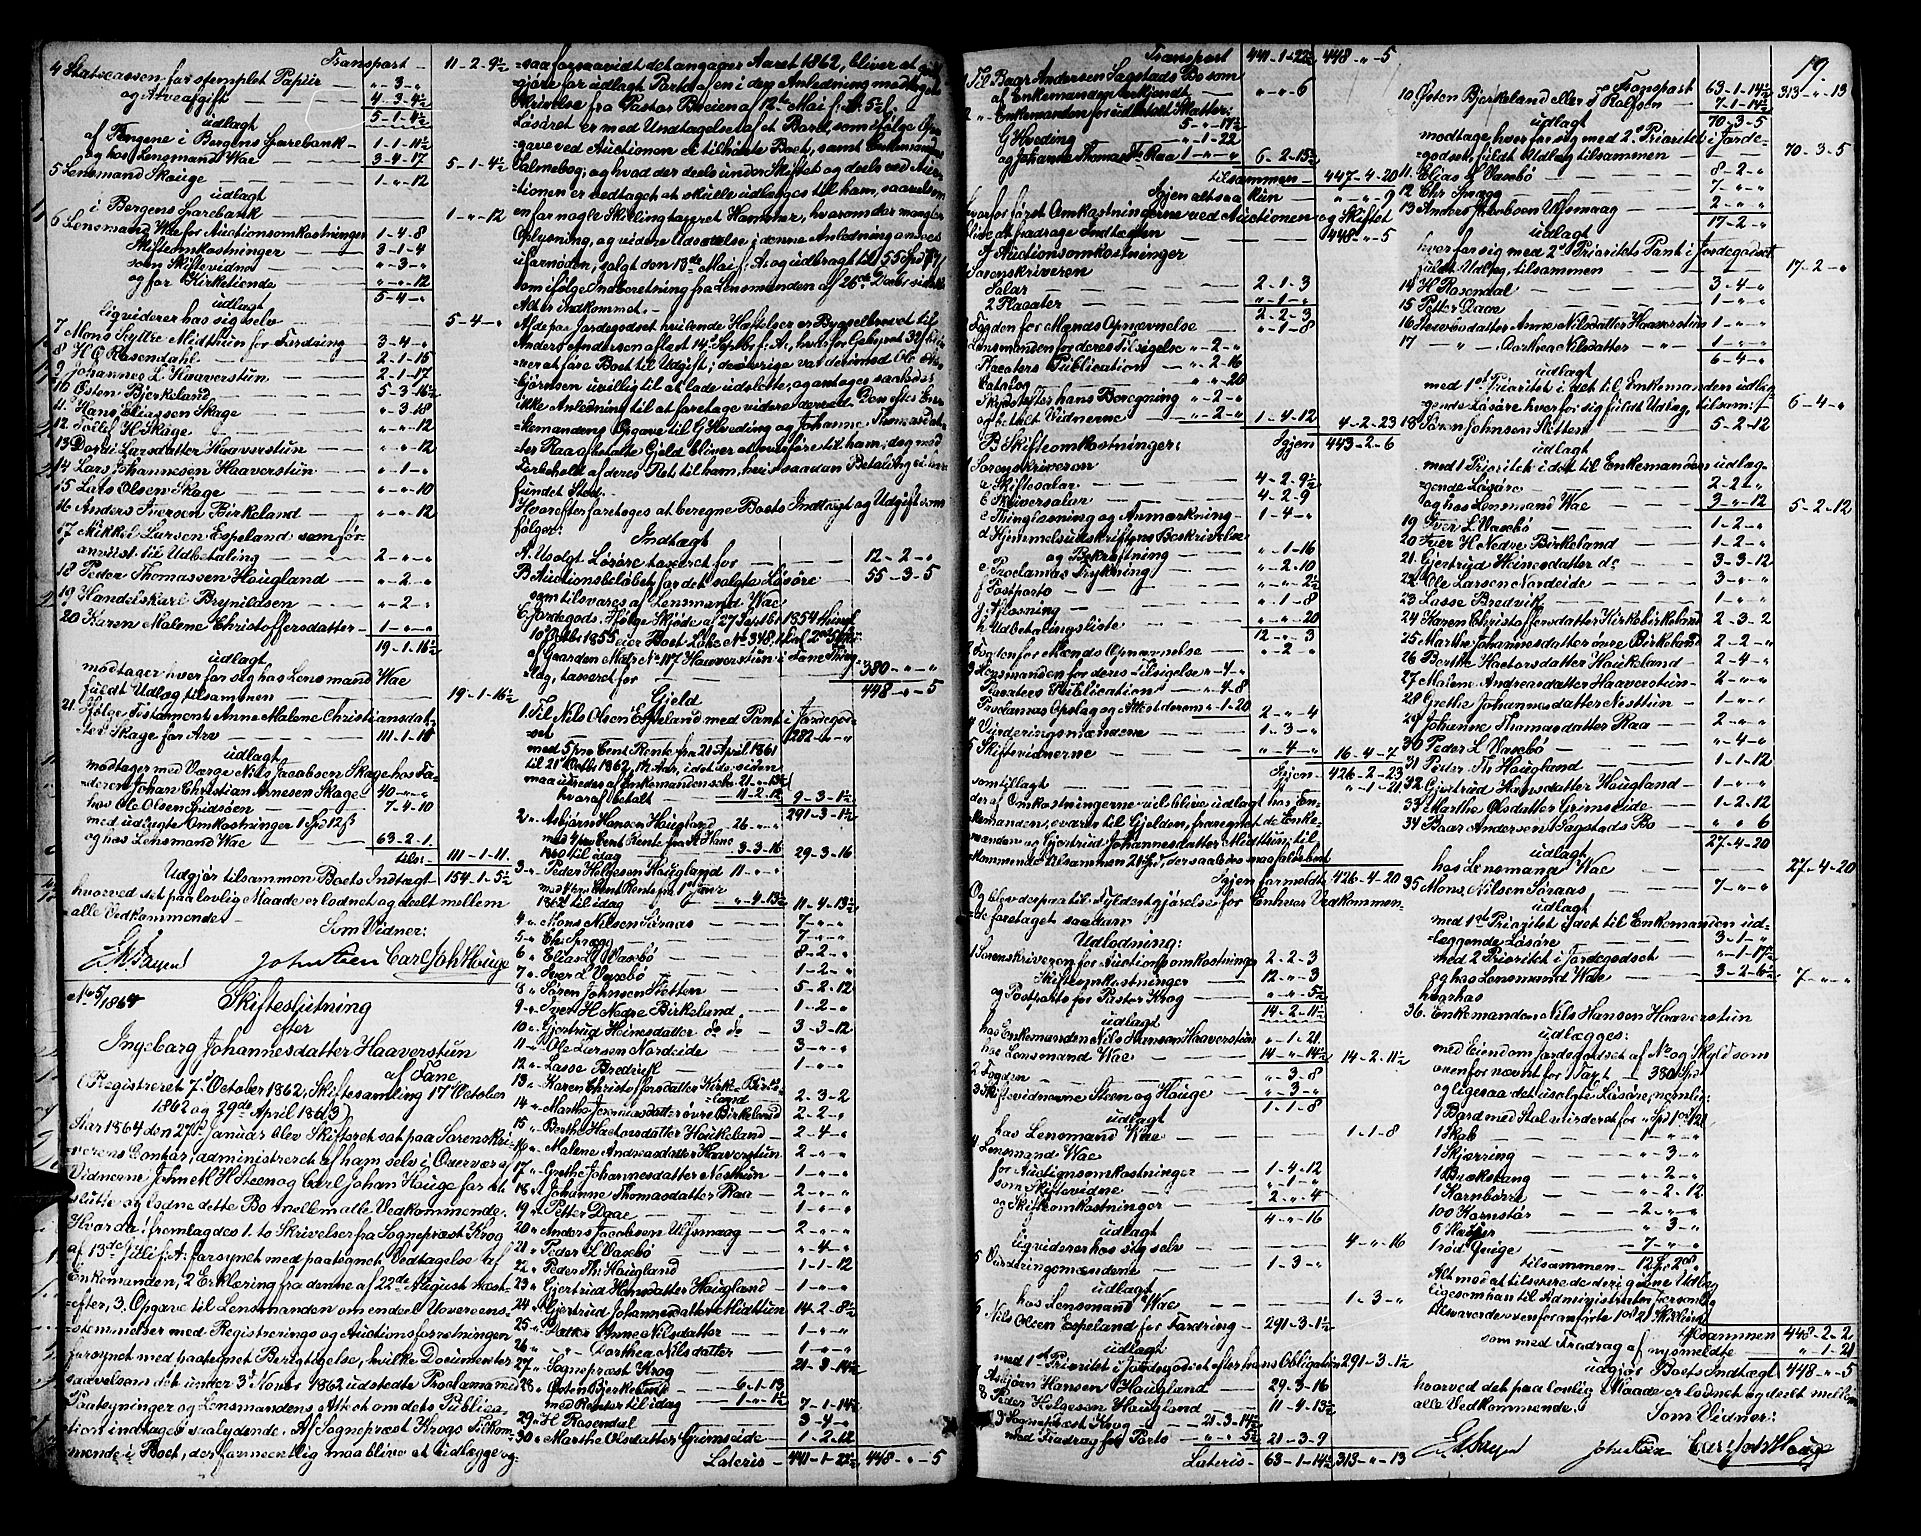 Transport — 11-2-9½
4 Statscassen for stemplet Papiir — „-3-„
og Arveafgift — 4-3-4½
udlagt 5-1-4½
af Pengene i Bergens Sparebank — 1-1-11½
og hos Lensmand Wae — 3-4-17 5-1-4½
5 Lensmand Skouge — 1-„-12
udlagt
i Bergens Sparebank — 1-„-12
6 Lensmand Wae for Auctionsomkostninger 1-4-8
Skifteomkostninger — 3-1-4
som Skiftevidne — „-3-„
og for Kirketiende — „-„-12
udlagt 5-4-„
liqviderer hos sig selv — 5-4-„
7 Mons Midthun for Fordring — 3-4-„
8 H. C. Rosendahl — 2-1-15
9 Johannes L. Haaverstun — 2-1-17
10 Østen Birkeland — 5-3-16½
11 Hans Eliassen Skage — „-3-18
12 H. Skage — „-„-12
13 Larsdatter Haaverstun — „-„-12
14 Lars Johannesen Haaverstun — „-1-„
15 Lars Olsen Skage — „-„-10
16 Anders Iversen Birkeland — „-„-12
17 Mikkel Larsen Espeland som
anvist til Udbetaling — 2-„-„
18 Peder Thomassen Haugland — „-2-„
19 Handelskarl Brynildsen — „-2-„
20 Karen Malene Christoffersdatter — 1-„-„
19-1-16½
udlagt
modtager hver for sig hos Lensmand Wae
fuldt Udlæg tilsammen — 19-1-16½
21 Ifølge Testament Anne Malene Christiansdat-
ter Skage for Arv — 111-1-11
udlagt
modtager med Værge Nils Jacobsen Skage hos Fa-
deren Johan Christian Annesen Skage 40-„-„
hos Ole Olsen — 7-4-10
med udlagte Omkostninger 1 Spd 12 ß
og hos Lensmand Wae — 63-2-1
tils: 111-1-11
Udgjør tilsammen Boets Indtægt 154-1-5½
hvorved det paa lovlig Maade er lodnet og deelt mellem
alle Vedkommende.
Som Vidner:
John Steen Carl Joh Houge
1864
Skifteslutning
efter
Ingeborg Johannesdatter Haaverstun
af Fane
(Registreret 7de October 1862, Skiftesamling 17de October
1862 og 29de April 1863)
Aar 1864 den 27de Januar blev Skifteret sat paa Sorenskri-
verens Contor, administreret af ham selv i Overvær af
Vidnerne John H Steen og Carl Johan Houge for at
slutte og lodne dette Bo mellem alle Vedkommende.
Hvorda fremlagdes 1. to Skrivelser fra Sognepræst Krog
af 13de Juli f: A: forsynet med paategnet Vedtagelse af
Enkemanden, 2 Erklæring fra denne af 22de August næst-
efter, 3. Opgave til Lensmanden om endel Uovereens-
stemmelser med Registrerings og Auctionsforretningen
forsynet med paategnet Berigtigelse, hvilke Documenter
saavelsom det under 3de Novbr 1862 udstedte Proclama med
Paategninger og Lensmandens Attest om dets Publica-
tion indtages saalydende. Af Sognepræst Krogs Tilkom-
mende i Boet, der formeentlig maa blive at udlægge og-
saa forsaavidt det angaaer Aaret 1862, bliver at
gjøre for udlagt Porto af en i den Anledning modtagen
Skrivelse fra Pastor af 12te Mai f: A: 5½ ß.
Løsøret er med Undtagelse af et Bord, som ifølge Op-
gave ved Auctionen ei tilhørte Boet, samt Enkemandens
Salmebog; og hvad der deels under Skiftet og deels ved Auc-
tionen er vedtaget at skulle udlægges til ham, saavelsom
en for nogle Skilling taxeret Hammer, hvorom der mangler
Oplysning, og videre Udsættelse i denne Anledning ansees
ufornøden, solgt den 18de Mai f: A: og udbragt til 55 Spd
som ifølge Indberetning fra Lensmanden af 26de Decbr sidste
Aar er indkommet.
Af de paa Jordegodset hvilende Heftelser er Bygselbrevet til
Anders Andersen aflyst 14de Septbr f: A:,
at føre Boet til Udgift; derimod
Bjørnsen uvillig til at lade udslette, og antages saaledes
ikke Anledning til at foretage videre derved. Den efter En-
kemandens Opgave til G Hveding og Johanne Thomasdat-
ter Raa betalte Gjeld bliver at overføre til ham, dog med
Forbehold af deres Ret til ham, hvis saadan Betaling ei har
fundet Sted.
Hvorefter foretoges at beregne Boets Indtægt og Udgift som
følger:
Indtægt
A. Usolgt Løsøre taxeret for — 12-2-„
B. Auctionsbeløbet for det solgte Løsøre 55-3-5
som tilsvares af Lensmand Wae
C. Jordegods. Ifølge Skjøde af 27 Septbr 1854
10 Octbr 1855 eier Boet
af Gaarden Matr. No 117 Haaverstun i Fane Thing-
lag, taxeret for — 380-„-„
448-„-5
Gjeld
1. Til Nils Olsen Espeland med Pant i Jordegod-
set — 282-„-„
med 5 pro Cent Rente fra 21 April 1861
til 21de Octbr 1862, 1½ Aar, idet de siden
maa udredes af Enkemanden selv 21-„-13½
hvoraf betalt — 11-2-12 9-3-1½
291-3-1½
2 „ Asbjørn Hansen Haugland — 26-„-„
med 4 pro Cent Rente fra
1860 til idag — 3-3-16 29-3-16
3 „ Peder Helgesen Haugland 11-„-„
med 4 pro Cent Rente fra 1ste
1862 til idag — „-4-13½ 11-4-13½
4 „ Mons Nilsen Søraas — 7-„-„
5 „ Chr Sprægg — 7-„-„
6 „ Elias L Vasebø — 8-2-„
7 „ Iver L Vasebø — 1-2-„
8 „ Søren Johnsen Sletten — 5-2-12
9 „ Iver H Nedre Birkeland — 1-2-„
10 „ Gjertrud Heinesdatter do do — 3-3-12
11 „ Ole Larsen Nordeide — 3-„-„
12 „ Lasse Bredvik — 1-„-„
13 „ Karen Christoffersdatter Kirke-Birke-
land — 2-3-2
14 „ Marthe Johannesdatter øvre Birkeland 2-2-„
15 „ Berthe Hactorsdatter Houkeland — 2-4-„
16 „ Malene Andreasdatter Haaverstun 2-„-„
17 „ Grethe Johannesdatter Nesttun — 1-„-„
18 „ Johanne Thomasdatter Raa — 2-„-„
19 „ Petter Daae — 1-„-„
20 „ Anders Jacobsen Ulfsmaag — 2-„-„
21 „ Peder L Vasebø — „-4-„
22 „ Peder Th: Haugland — 1-1-12
23 „ Gjertrud Hansdatter Haugland — 1-„-„
24 „ Gjertrud Johannesdatter Midttun 14-2-8½
25 „ Datter Anne Nilsdatter — 1-„-„
26 „ „ Dorthea Nilsdatter — 1-„-„
27 „ Sognepræst Krog — 21-3-14½
28 „ Østen Bjerkeland — 6-1-13
med Renter til idag — 1-„-1½ 7-1-14½
29 „ H Rosendal — 3-4-„
30 „ Marthe Olsdatter Grimseide — 1-2-12
Lateris — 441-1-22½ 448-„-5
Transport 441-1-22½ 448-„-5
Til Baar Andersen Sagstads Bo som
af Enkemanden — „-„-6
„ Enkemanden for udbetalt Skatter: 5-„-17½
G Hveding — „-1-22
og Johanne Thomasdtr Raa 1-„-„ 6-2-15½
tilsammen — 447-4-20
Igjen altsaa kun — „-„-9
hvorfor først Omkostningerne ved Auctionen og Skiftet
blive at fradrage Indtægten — 448-„-5
A Auctionsomkostninger
Sorenskriveren
Salær — 2-1-3
2 Placater — „-1-„
2-2-3
Fogden for Mænds Opnævnelse — „-1-8
Lensmanden for deres Tilsigelse „-2-„
Placaters Publication — „-2-16
Catalog — „-„-20
Skyds efter hans Beregning „-2-„
og betalt Vidnerne — „-2-„ 1-4-12
4-2-23
B Skifteomkostninger: Igjen 443-2-6
1 Sorenskriveren
a Skiftesalær — 4-2-9½
b Skriversalær — 4-2-9
c Thinglæsning og Anmærkning — 1-4-„
d Hjemmelsudskriftens Beskrivelse
og Bekræftning — „-1-16
e Proclamas Trykning — „-2-10
f Postporto — „-„-2½
g Aflæsning — „-1-8
h Udbetalingsliste — „-„-20
12-„-3
2 Fogden for Mænds Opnævnelse — „-2-„
3 Lensmanden for deres Tilsigelse „-4-„
Placaters Publication — „-4-8
Proclamas Opslag og Attest derom „-1-20 2-„-4
4 Vurderingsmændene — 1-3-„
5 Skiftevidnerne — „-4-„ 16-4-7
Igjen — 426-2-23
som tillagt — „-1-21
der af Omkostningerne vil blive udlagt hos En-
kemanden, svarer til Gjelden, fraregnet de Enke-
manden og Gjertrud Johannesdatter Midttun til-
kommende tilsammen 21 Spd, der saaledes maa falde bort
Igjen formeldte 426-4-20
Og blev des paa til Fyldestgjørelse for Enhver Vedkommen-
de foretaget saadan
Udlodning:
1 Sorenskriveren for Auctionsomkostninger 2-2-3
Skifteomkostninger — 12-„-3
og Postporto for Pastor Krog — „-„-5½
udlagt 14-2-11½
hos Enkemanden Nils Hansen Haaverstun „-1-21
hos Lensmand Wae — 14-„-14½ 14-2-11½
2 Fogden — „-3-8
3 Skiftevidnerne Steen og Houge — „-3-„
1-1-8
udlagt
hos Lensmand Wae — 1-1-8
4 Lensmand Wae
for Auctionsomkostninger — 1-4-12
som Skiftevidne — „-1-„
og Skifteomkostninger — 2-„-4
4-„-16
udlagt
liqviderer hos sig selv — 4-„-16
5 Vurderingsmændene — 1-3-„
udlagt
hos Lensmand Wae — 1-3-„
6 Nils Olsen Espeland for Fordring — 291-3-1½
udlagt
med 1ste Prioritet i Jordegodset efter hans Obligation 291-3-1½
7 Asbjørn Hansen Haugland — 29-3-16
8 Peder Helgesen Haugland — 11-4-13½
9 Sognepræst Krog — 21-3-14½
med Fradrag for Porto — „-„-5½ 21-3-9
Lateris — 63-1-14½ 313-„-13
19.
Transport 63-1-14½ 313-„-13
10 Østen Bjerkeland eller Rolfsen — 7-1-14½
udlagt 70-3-5
modtage hver for sig med 2den Prioritet i Jorde-
godset, fuldt Udlæg tilsammen — 70-3-5
11 Elias L Vasebø — 8-2-„
12 Chr Sprægg — 7-„-„
13 Anders Jacobsen Ulfsmaag — 2-„-„
17-2-„
udlagt
hver for sig med 2den Prioritets Pant i Jordegodset
fuldt Udlæg, tilsammen — 17-2-„
14 H Rosendal — 3-4-„
15 Petter Daae — 1-„-„
16 Anne Nilsdatter Haaverstun 1-„-„
17 „ Dorthea Nilsdatter „ 1-„-„
6-4-„
udlagt
med 1ste Prioritet i det til Enkemanden udlæg-
gende Løsøre hver for sig fuldt Udlæg, tilsam: 6-4-„
18 Søren Johnsen Sletten — 5-2-12
udlagt
med 1 Prioritet i det til Enkemanden udlæg-
gende Løsøre — 2-2-„
og hos Lensmand Wae — 3-„-12 5-2-12
19 Iver L Vasebø — 1-2-„
20 Iver H Nedre Birkeland — 1-2-„
21 Gjertrud Heinesdatter do — 3-3-12
22 Ole Larsen Nordeide — 3-„-„
23 Lasse Bredvik — 1-„-„
24 Karen Christoffersdatter Kirkebirkeland 2-3-2
25 Marthe Johannesdatter øvre Birkeland 2-2-„
26 Berthe Hactorsdatter Haukeland — 2-4-„
27 Malene Andreasdatter Haaverstun 2-„-„
28 Grethe Johannesdatter Nesttun — 1-„-„
29 Johanne Thomasdatter Raa — 2-„-„
30 Peder L Vasebø — „-4-„
31 Peder Th Haugland — 1-1-12
32 Gjertrud Hansdatter Haugland — 1-„-„
33 Marthe Olsdatter Grimseide — 1-2-12
34 Baar Andersen Sagstads Bo — „-„-6
27-4-20
udlagt
hos Lensmand Wae — 27-4-20
35 Mons Nilsen Søraas — 7-„-„
udlagt
med 1ste Prioritet i det til Enkemanden ud-
læggende Løsøre — 3-1-„
med 2 Prioritet i Jordegodset — „-1-17½
og hos Lensmand Wae — 3-2-6½ 7-„-„
hvorhos
36. Enkemanden Nils Hansen Haaverstun
udlægges:
med Eiendom Jordegodset af No og Skyld som
ovenfor nævnt for Taxt — 380 Spd
og ligesaa det usolgte Løsøre, nemlig:
1 Bord med Stol vurderet for „ Spd 1 Ort 12 ß
1 Skab — 1-„-„
1 Skjæring — „-3-„
1 — „-2-„
1 Kornbørre — „-2-12
100 Kornstør — „-2-„
6 — „-3-„
1 rød Qvige — 7-„-„
tilsammen — 12 Spd 2 Ort
Alt mod at tilsvare de deri givne Udlæg
ligesom han til Administrator personlig
tilsvarede ovenanførte 1 Ort 21 Skilling
Tilsammen 448-2-2
som med Fradrag af nysmeldte — „-1-21
udgjør Boets Indtægt — 448-„-5
hvorved det paa lovlig Maade er lodnet og deelt mellem
alle Vedkommende.
Som Vidner:
John Steen Carl Joh Houge